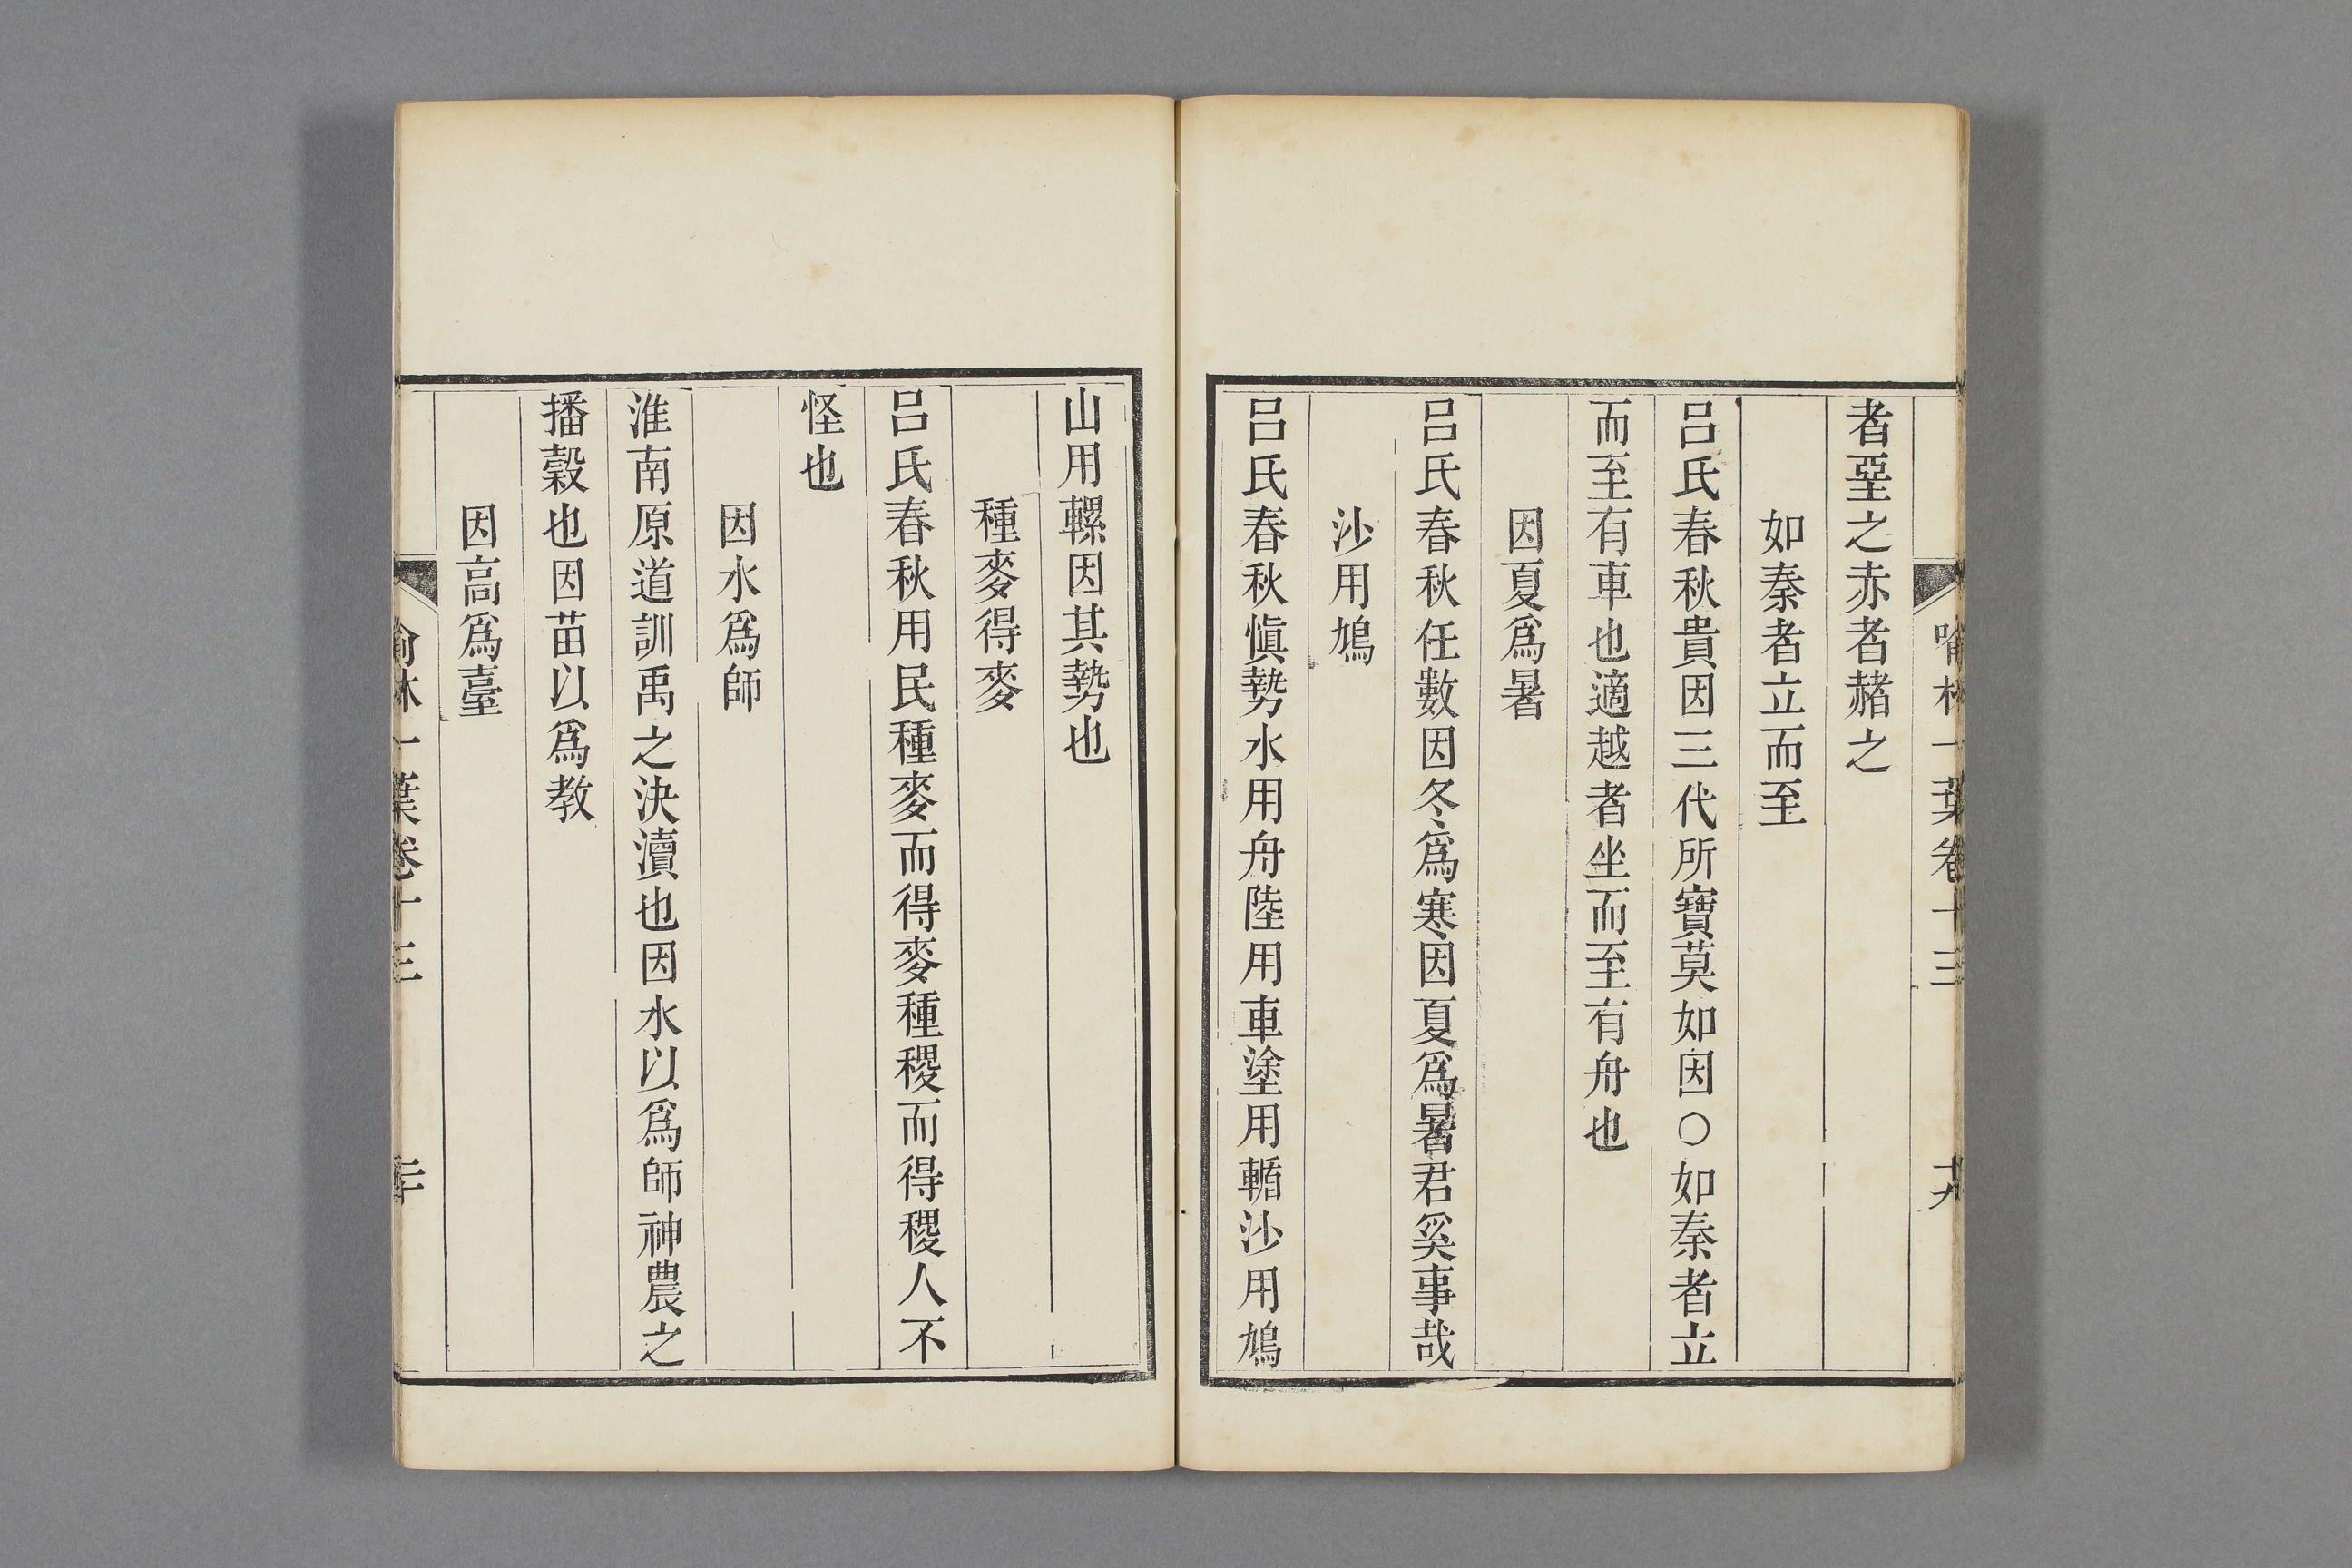 喻林一葉卷十三
十九
者堊之赤者赭之
如秦者立而至
呂氏春秋貴因三代所寶莫如因○如秦者立
而至有車也適越者坐而至有舟也
因夏爲暑
呂氏春秋任數因冬爲寒因夏爲暑君奚事哉
沙用鳩
呂氏春秋愼勢水用舟陸用車塗用輴沙用鳩
山用樏因其勢也
種麥得麥
呂氏春秋用民種麥而得麥種稷而得稷人不
怪也
因水爲師
淮南原道訓禹之決瀆也因水以爲師神農之
播穀也因苗以爲教
因高爲臺
喻林一葉卷十三
二十